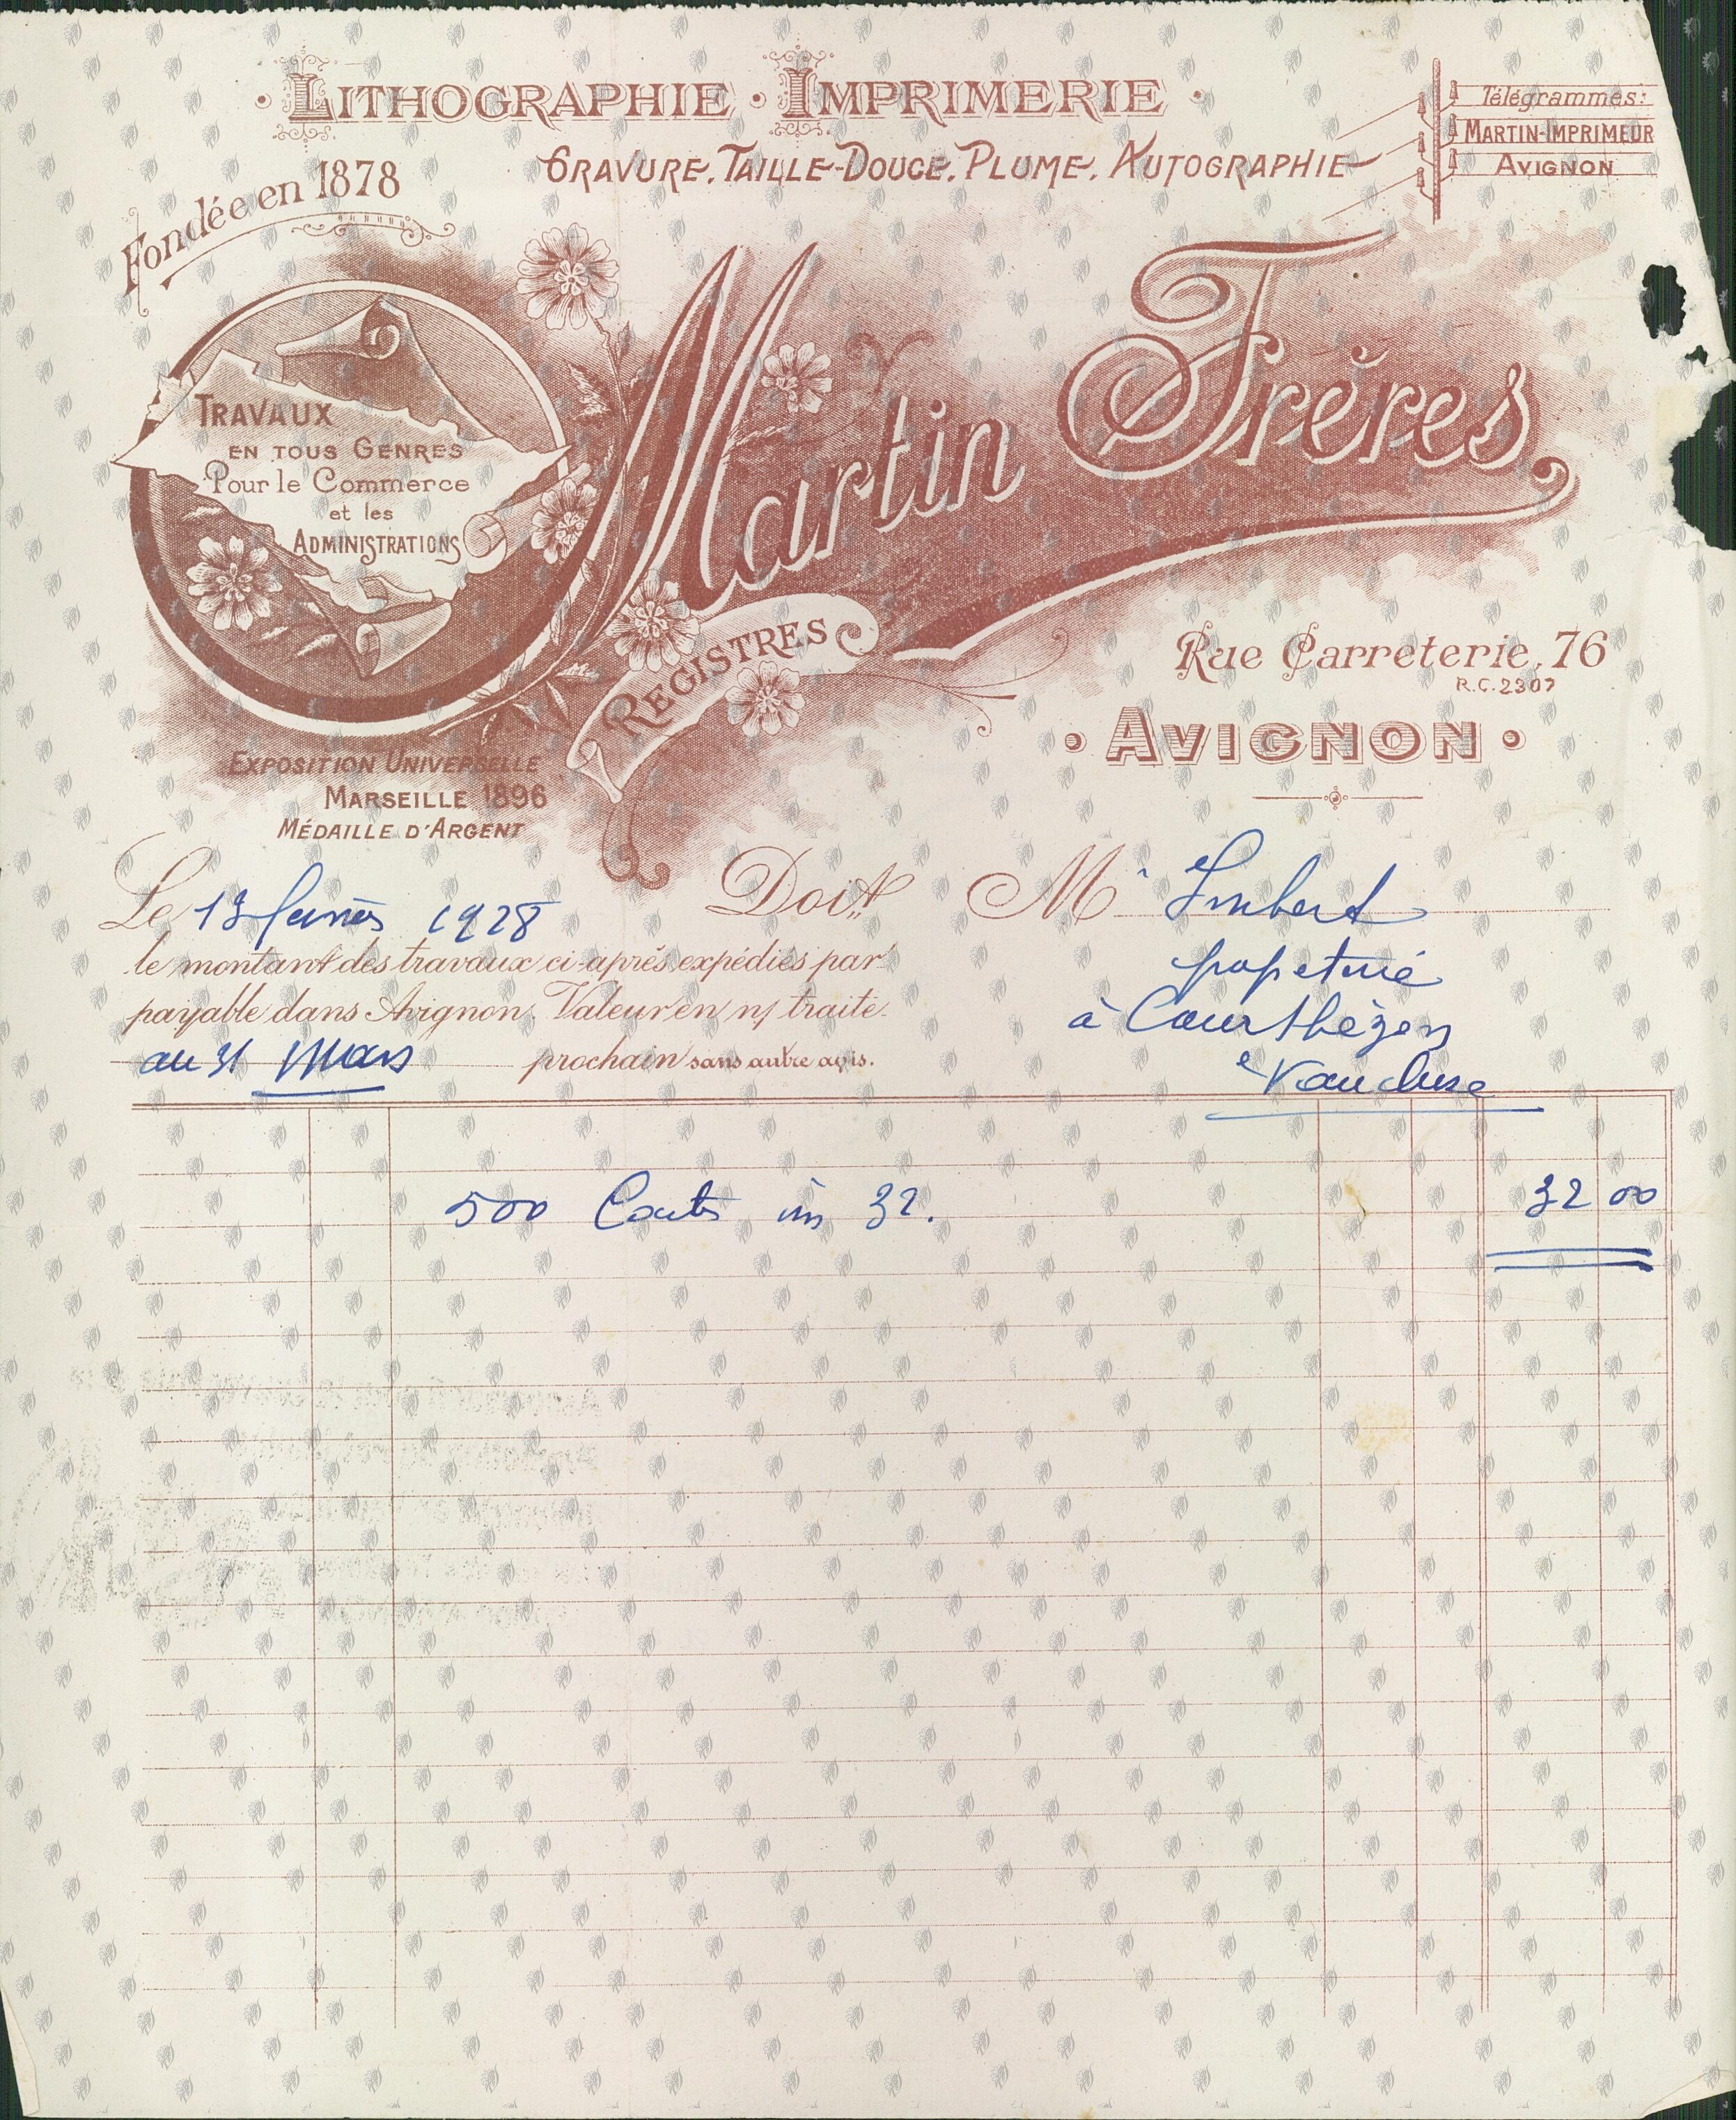 • LITHOGRAPHIE • IMPRIMERIE •
GRAVURE, TAILLE-DOUCE, PLUME, AUTOGRAPHIE
Télégrammes:
MARTIN-IMPRIMEUR
AVIGNON
Fondée en 1878
Martin Frères
TRAVAUX
EN TOUS GENRES
Pour le Commerce
et les
ADMINISTRATIONS
REGISTRES
Rue Carreterie, 76
R.C. 2307
• AVIGNON •
EXPOSITION UNIVERSELLE
MARSEILLE 1896
MÉDAILLE D'ARGENT
Le 13 1928 Doit M. Imbert
le montant des travaux ci-après expédiés par
papeterie
payable dans Avignon. Valeur en n/ traite.
à Courthézon
au 31 Mars prochain sans autre avis.
Vaucluse
500 32. 32 00